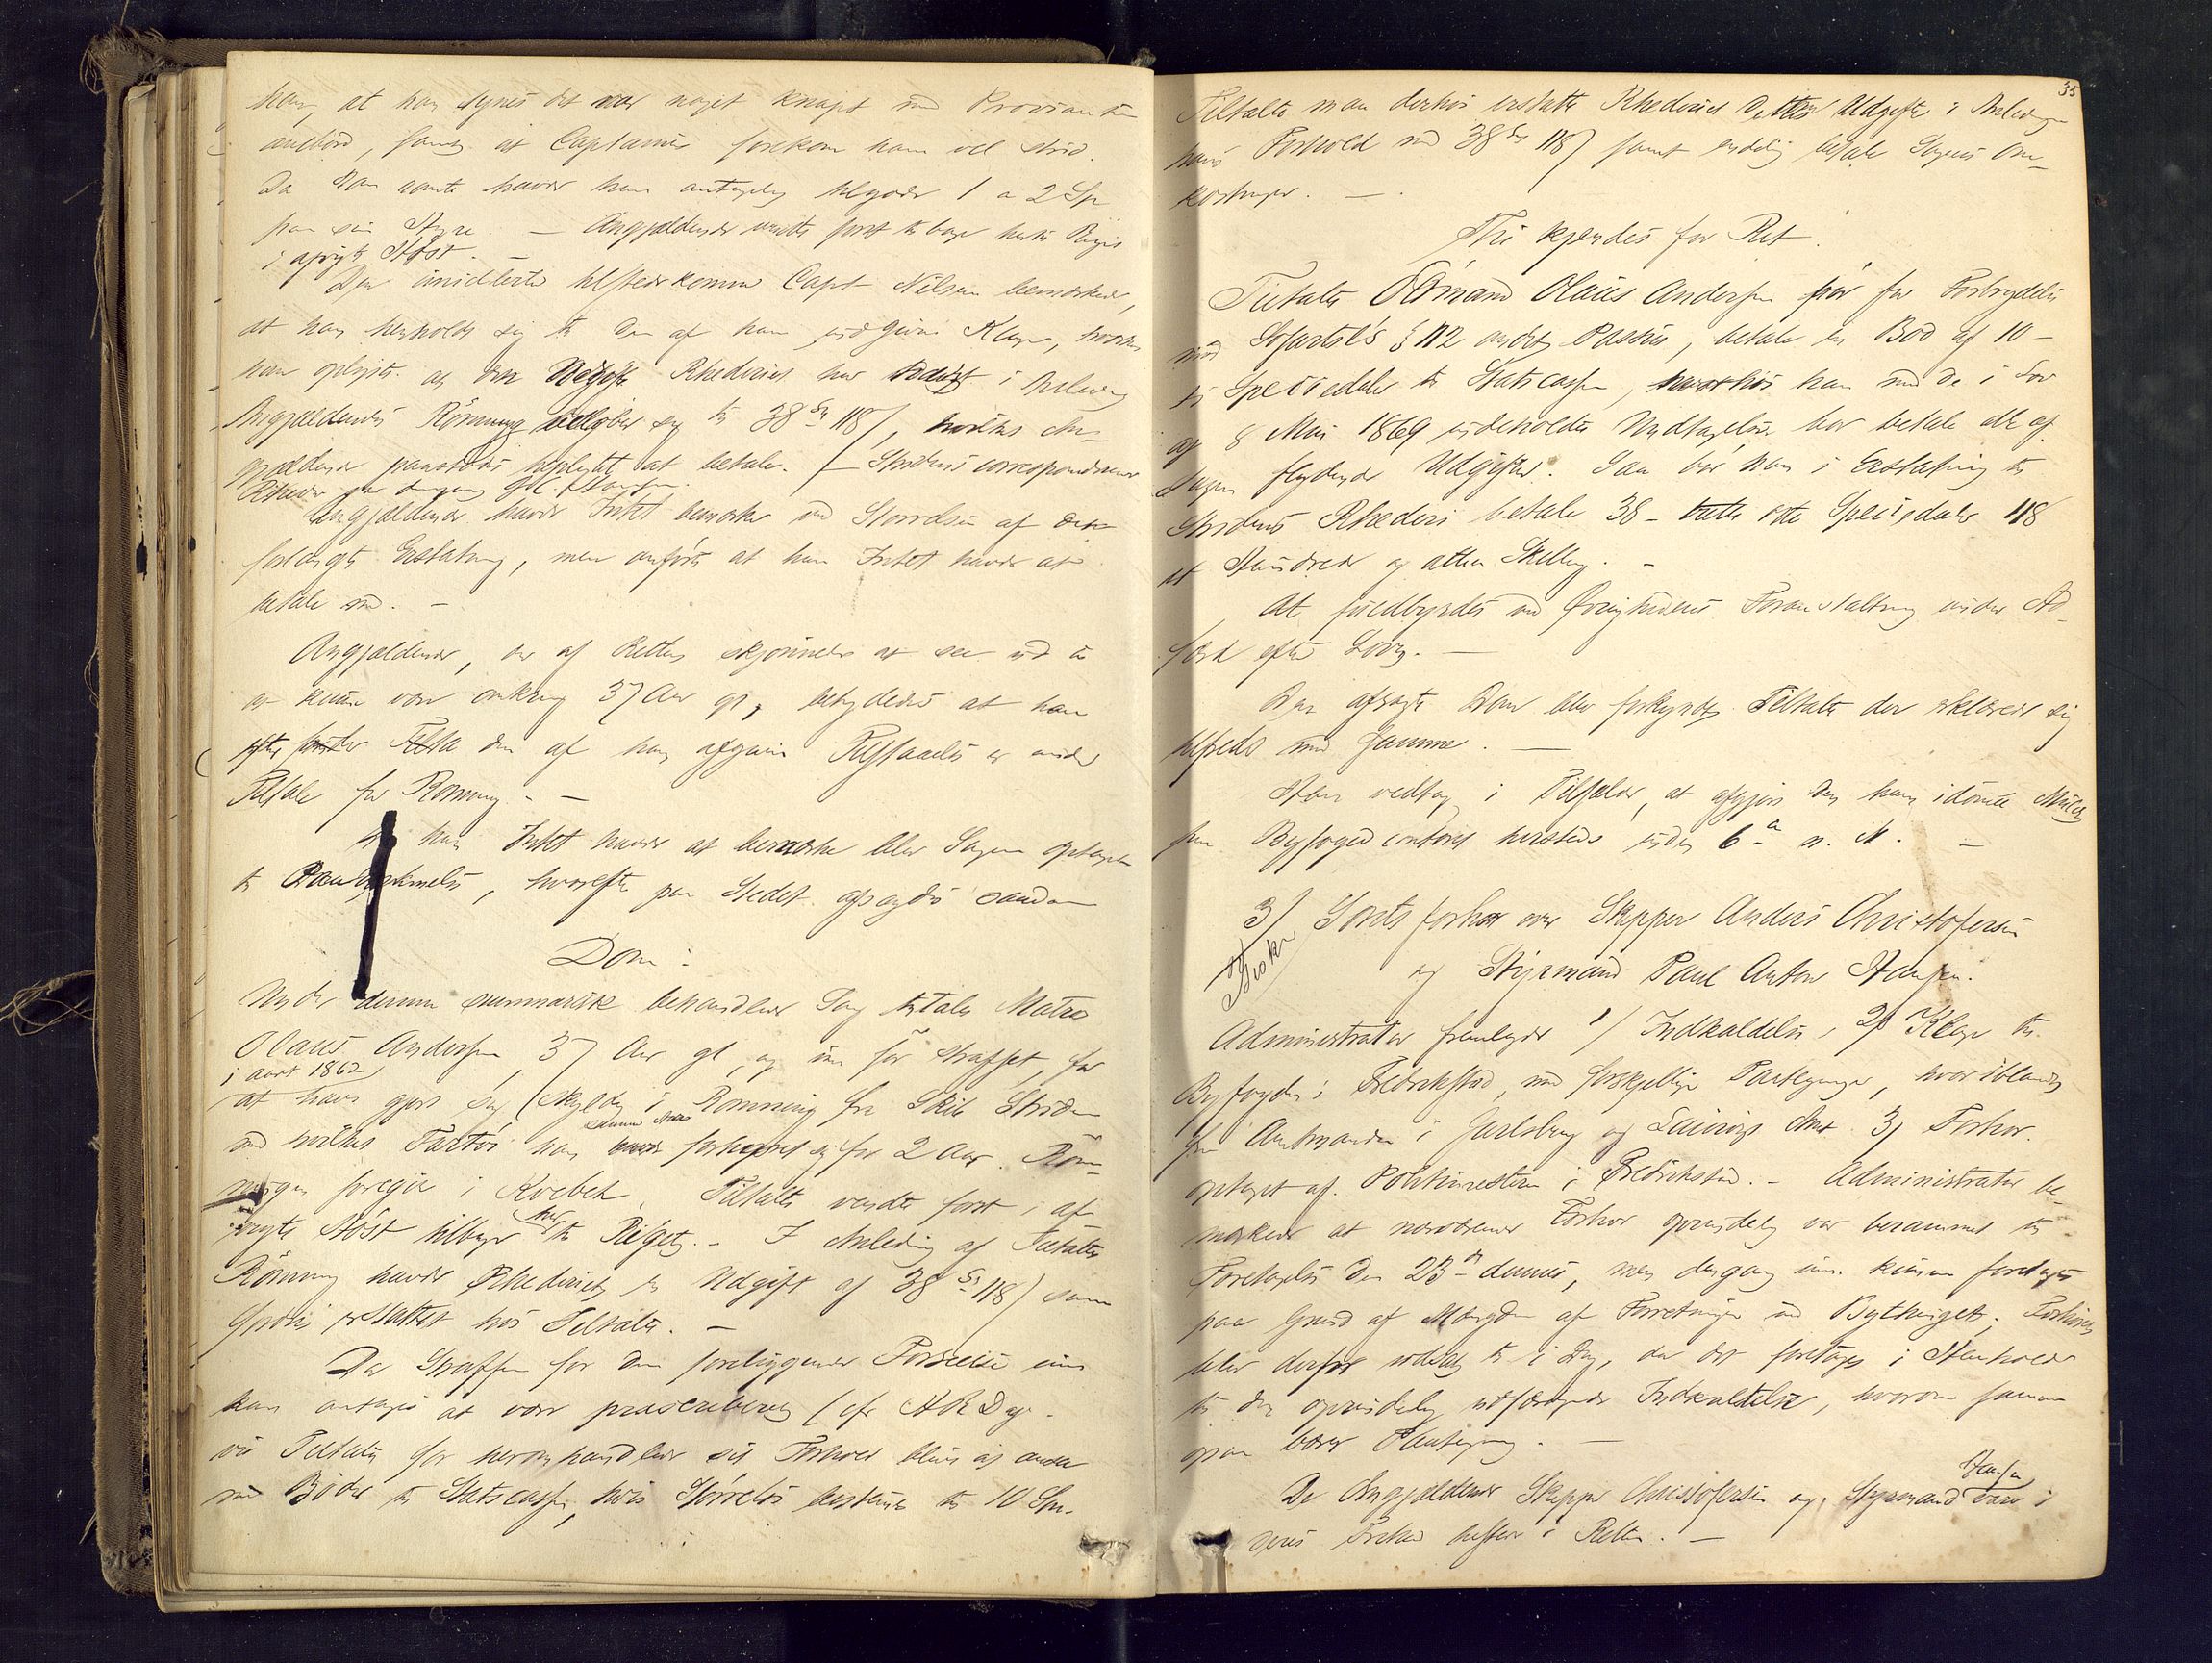 han, at han synes det var noget knapt med Provianten
ombord, samt at Captainen forekom ham vel strid.
Da han rømte havde han antagelig tilgode 1 a 2 Sp
paa sin Hyre. — Angjældende vendte først tilbage hertil Riget
i afvigte Høst. —
Den imidlertid tilstedekomne Capt Nilsen bemærkede,
at han henholdt sig til den af ham indgivne Klage, hvorhos
han oplyste at den Udgift Rhederiet har havt i Anledning
Angjældendes Rømning beløber sig til 38 Sp 118 s, hvilke An-
gjældende paastodes tilpligtet at betale. — Stridens correspondrende
Rheder var dengang
Angjældende havde Intet at bemærke ved Størrelsen af den
forlangte Erstatning, men anførte at han Intet havde at
betale med. —
Angjældende, der af Retten skjønnedes at see ud til
at kunne være omkring 37 Aar gl, betydedes at han
efter den af ham afgivne Tilstaaelse er under
Tiltale for Rømning. —
Da han Intet havde at bemærke blev Sagen optagen
til Paakjendelse, hvorefter paa Stedet afsagdes saadan
Dom:
Under denne summarisk behandlede Sag tiltales Matros
Olaus Andersen, 37 Aar gl, og ikke før straffet, for
i Aaret 1862
at have gjort sig skyldig i Rømning fra Skib Striden
med hvilket Fartøi han samme Aar havde forhyret sig for 2 Aar. Røm-
ningen foregik i Kvebek. Tiltalte vendte først i af-
vigte Høst tilbage her til Riget. — I Anledning af Tiltaltes
Rømning havde Rhederiet en Udgift af 38 Sp 118 s som
fordres erstattet hos Tiltalte. —
Da Straffen for den foreliggende Forseelse ikke
kan antages at være præscriberet (cfr H R D
vil Tiltalte for heromhandlede sit Forhold blive at ansee
med Bøder til Statscassen, hvis Størrelse bestemmes til 10 Spd.
35
Tiltalte maa derhos erstatte Rhederiet dettes Udgifter i Anledning
hans Forhold med 38 Sp 118 s samt endelig betale Sagens Om-
kostninger. —
Thi kjendes for Ret:
Tiltalte Sømand Olaus Andersen bør for Forbrydelse
mod Søfartsl's § 112 andet Passus, betale en Bod af 10 –
ti Speciedaler til Statscassen, hvorhos han med de i Lov
af 8 Mai 1869 indeholdte Undtagelser bør betale alle af
Sagen flydende Udgifter. Saa bør han i Erstatning til
Stridens Rhederi betale 38 – tretti otte Speciedaler 118
et Hundrede og atten Skilling. —
At fuldbyrdes ved Øvrighedens Foranstaltning under Ad-
færd efter Loven. —
Den afsagte Dom blev forkyndt Tiltalte der erklærede sig
tilfreds med samme. —
Han vedtog i Tilfælde, at afgjøre den ham idømte Mulct
paa Byfogedcontoret hersteds inden 6te n. M. —
3/ Forhør over Skipper Anders Christofersen
og Styrmand Paul Anton Hansen.
Administrator fremlagde 1/ Indkaldelse, 2/ Klage til
Byfogden i Fredrikstad, med forskjellige Paategninger, hvoriblandt
fra Amtmanden i Jarlsberg og Laurvigs Amt. 3/ Forhør
optaget af Politimesteren i Fredrikstad. — Administrator be-
mærkede at nærværende Forhør oprindelig var berammet til
Foretagelse den 23de dennes, men dengang ikke kunde foretages
paa Grund af Mængden af Forretninger ved Bythinget. Forhøret
blev derfor udsat til i Dag, da det foretages i Henhold
til den oprindelig udfærdigede Indkaldelse, hvorom samme
ogsaa bærer Paategning. —
De Angjældende Skipper Christofersen og Styrmand Hansen vare i
tilstede i Retten. —